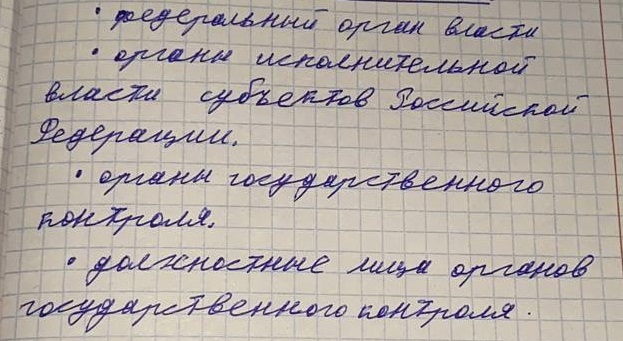 • федеральный орган власти
• органы исполнительной
власти субъектов Российской
Федерации.
• органы государственного
контроля.
• должностные лица органов
государственного контроля.